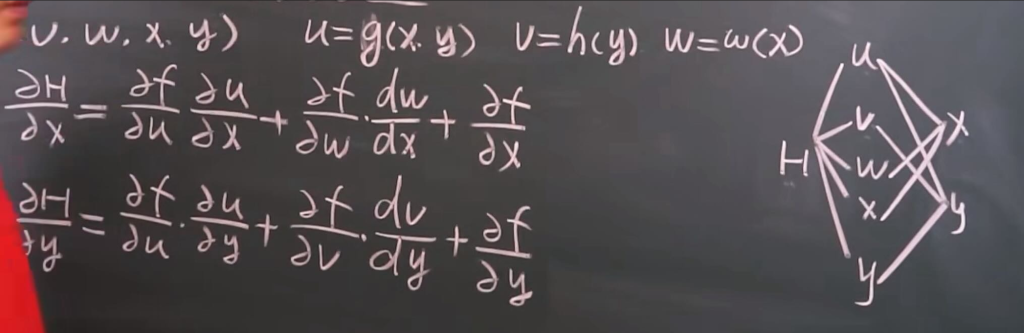 v, w, x, y) u=g(x,y) v=h(y) w=w(x)
∂H/∂x = ∂f/∂u ∂u/∂x + ∂f/∂w · dw/dx + ∂f/∂x
∂H/∂y = ∂f/∂u · ∂u/∂y + ∂f/∂v · dv/dy + ∂f/∂y
u
v x
H w
x y
y